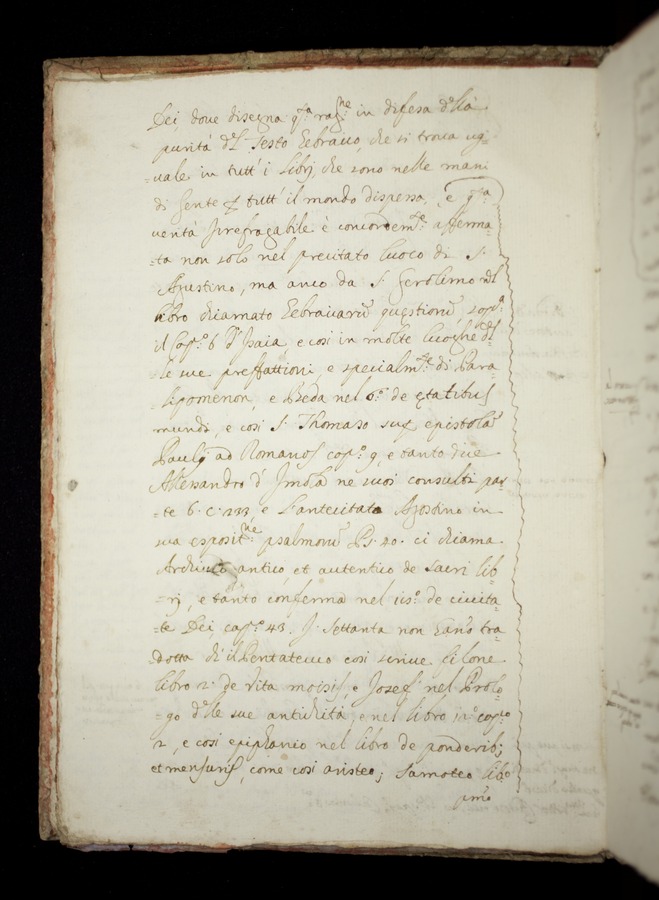 Dei, dove disegna q.ta rag.ne in difesa d'lla
purità d'l Testo Eebraico, che si trova ug=
=uale in tutt' i Libri, che sono nelle man
di Gente p tutt' il mondo dispersa, e q.ta
verità Irrefragabile è concordem.te afferma=
=ta non solo nel precitato luoco di S.
Agustino, ma anco da S. Gerolimo nel
libro chiamato Eebraicarū questionū, sop.a
il Cap.o 6 d'Isaia e così in molte luoghe d'l=
=le sue preffattioni e specialm.te di Para=
=lipomenon, e Beda nel 6.o de ętatibus
mundi, e così S. Thomaso sup epistolā
Pauly ad Romanos cap.o 9, e tanto dice
Alessandro d'Imola ne suoi consulti par=
=te 6. c. 233, e L'antecitato Agostino in
sua esposit.ne psalmorū Ps. 40. ci chiama
Archivio antico, et autentico de sacri lib=
=rj, e tanto conferma nel lib.o de civita=
=te Dei, cap.o 43. I Settanta non han.o tra
dotta ch' il Pentateuco così scrive filone
libro 2.o de vita moisis, e Josef nel Prolo=
=go d'lle sue antichità, e nel libro 12.o cap.to
2, e così epiphanio nel libro de ponderib;
et mensuris, come così aristeo; Samoteo libo
primo